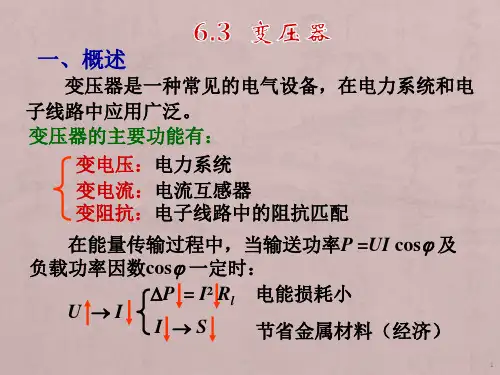 6.3 变压器
一、概述
变压器是一种常见的电气设备，在电力系统和电
子线路中应用广泛。
变压器的主要功能有：
变电压：电力系统
变电流：电流互感器
变阻抗：电子线路中的阻抗匹配
在能量传输过程中，当输送功率P =UI cosφ 及
负载功率因数cosφ 一定时：
ΔP↓= I²↓Rl 电能损耗小
U↑→ I↓
I↓→ S↓ 节省金属材料（经济）